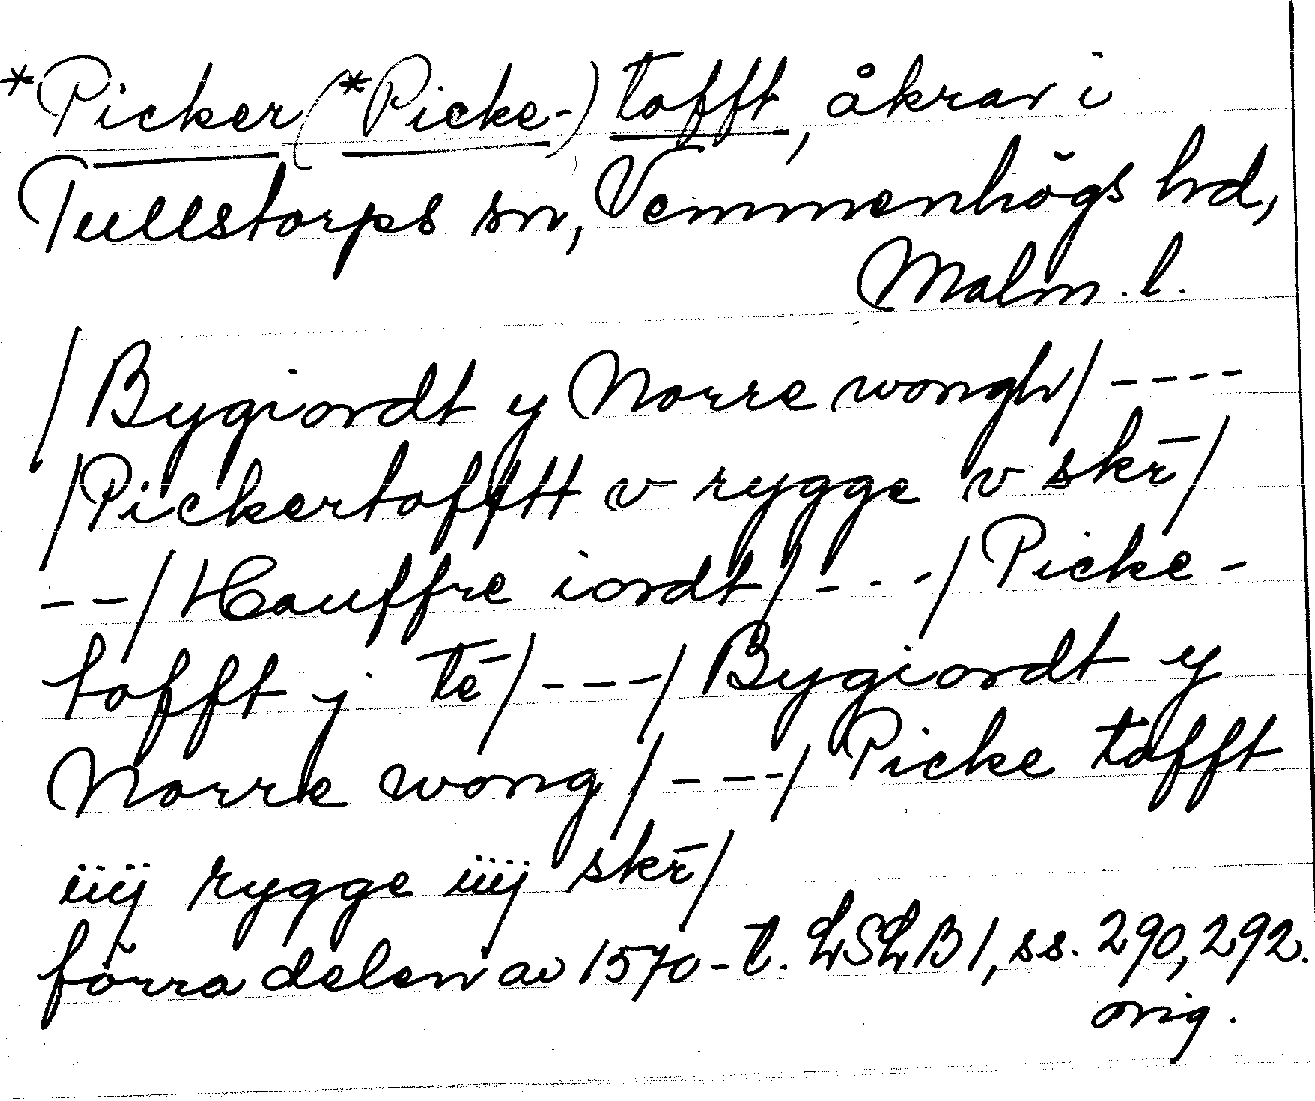 *Picker (*Picke-) tofft, åkrar i
Tullstorps sn, Vemmenhögs hd,
Malm. l.
/Bygiordt y Norre wongh/ ----
/Pickertofftt v rygge v skr̄/
--/Hauffre iordt/ --- /Picke-
tofft j tē/ --- /Bygiordt y
Norre wong/ --- /Picke tofft
iiij rygge iiij skr̄/
förra delen av 1570-t. LSLB 1, ss. 290, 292.
orig.